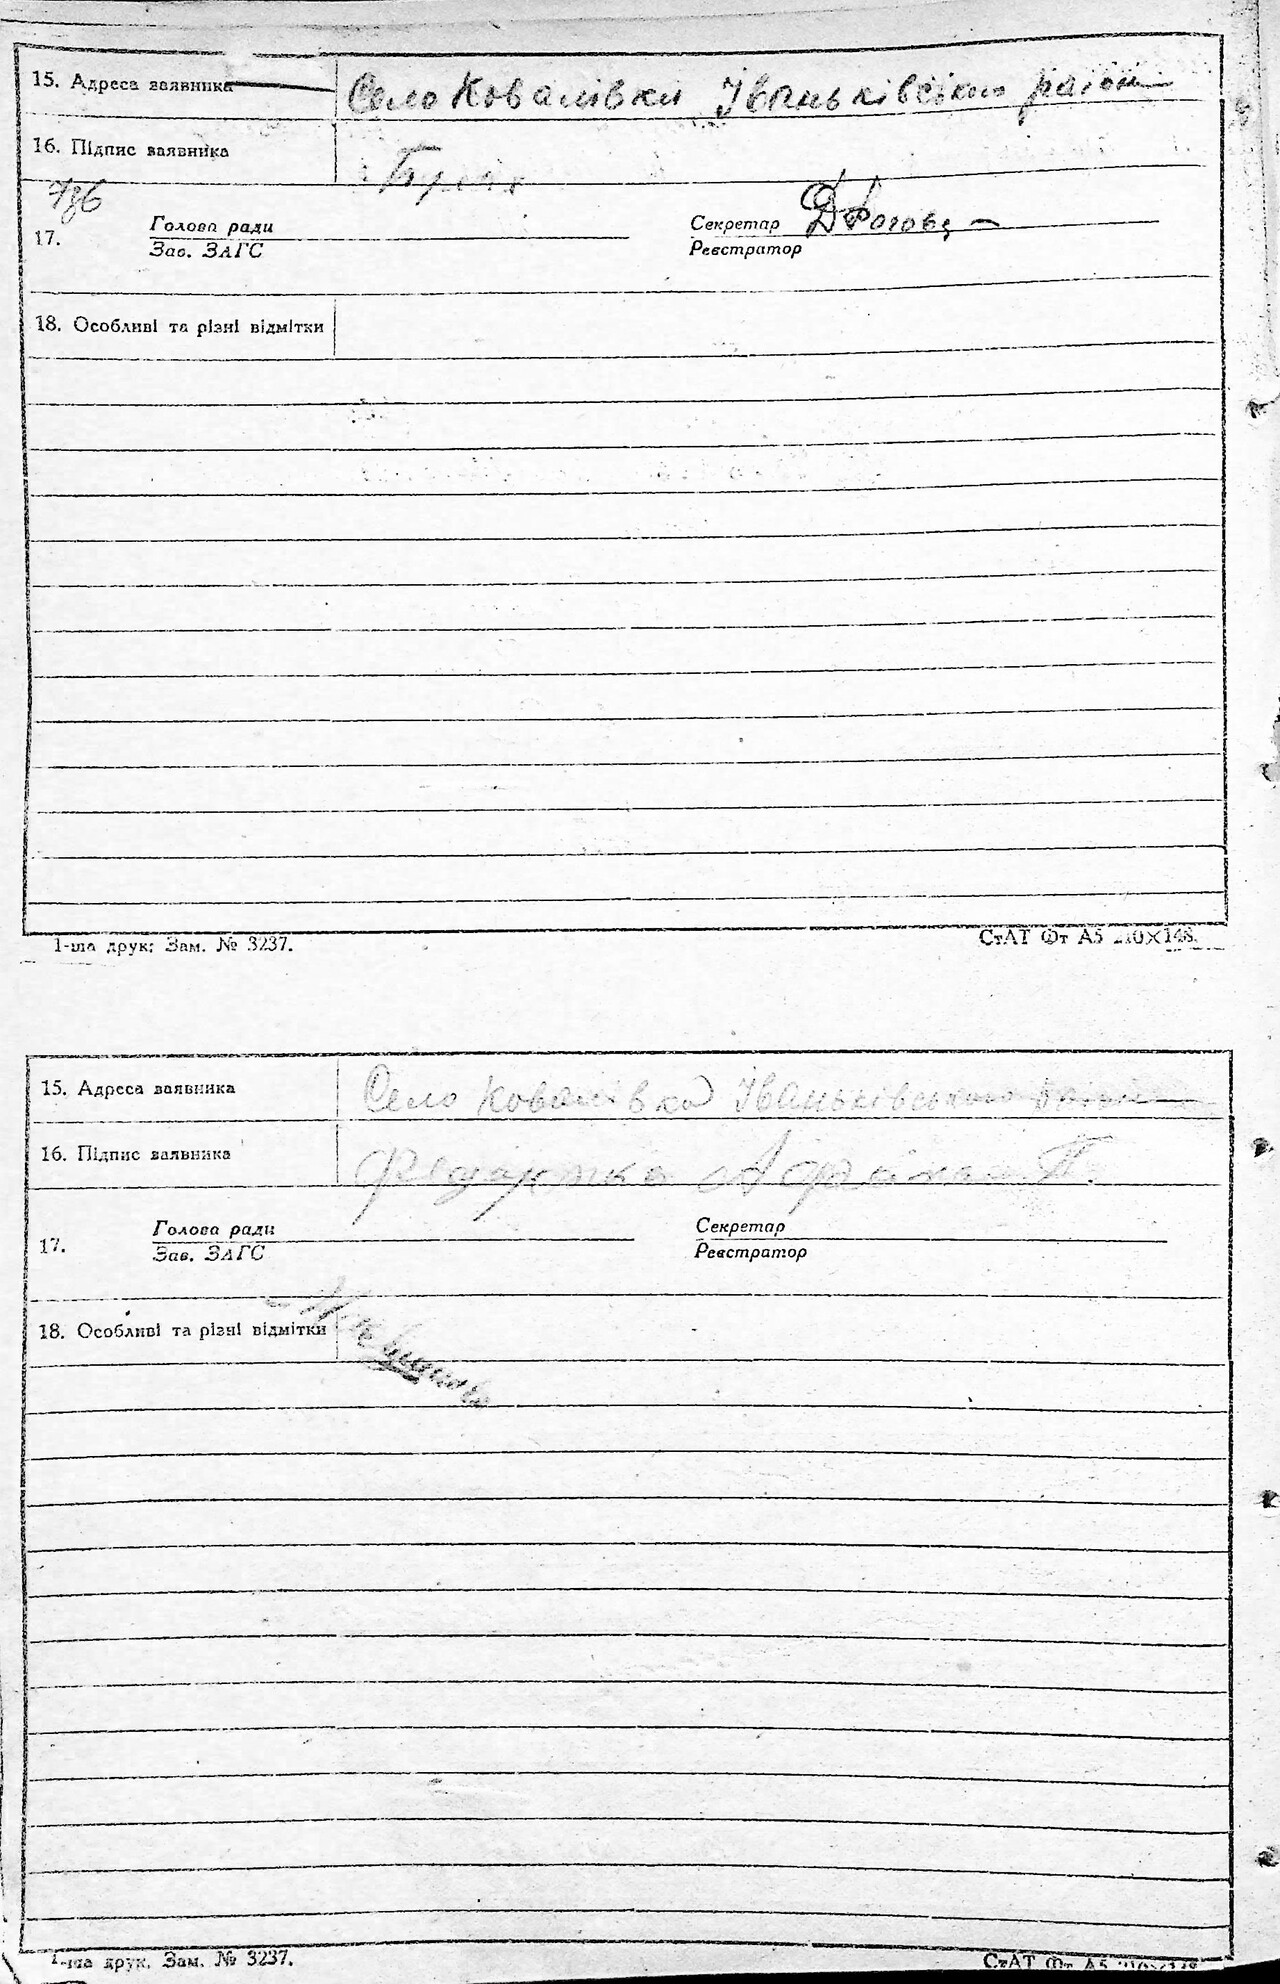 15. Адреса заявника Село Ковалівки Іваньківського район
16. Підпис заявника
17. Голова ради Секретар
Зав. ЗАГС Реєстратор
18. Особливі та різні відмітки
1-ша друк. Зам. № 3237. СтАТ Фт А5 210×148.
15. Адреса заявника Село Ковалівка Іваньківського район
16. Підпис заявника
17. Голова ради Секретар
Зав. ЗАГС Реєстратор
18. Особливі та різні відмітки
1-ша друк. Зам. № 3237. СтАТ Фт А5 210×148